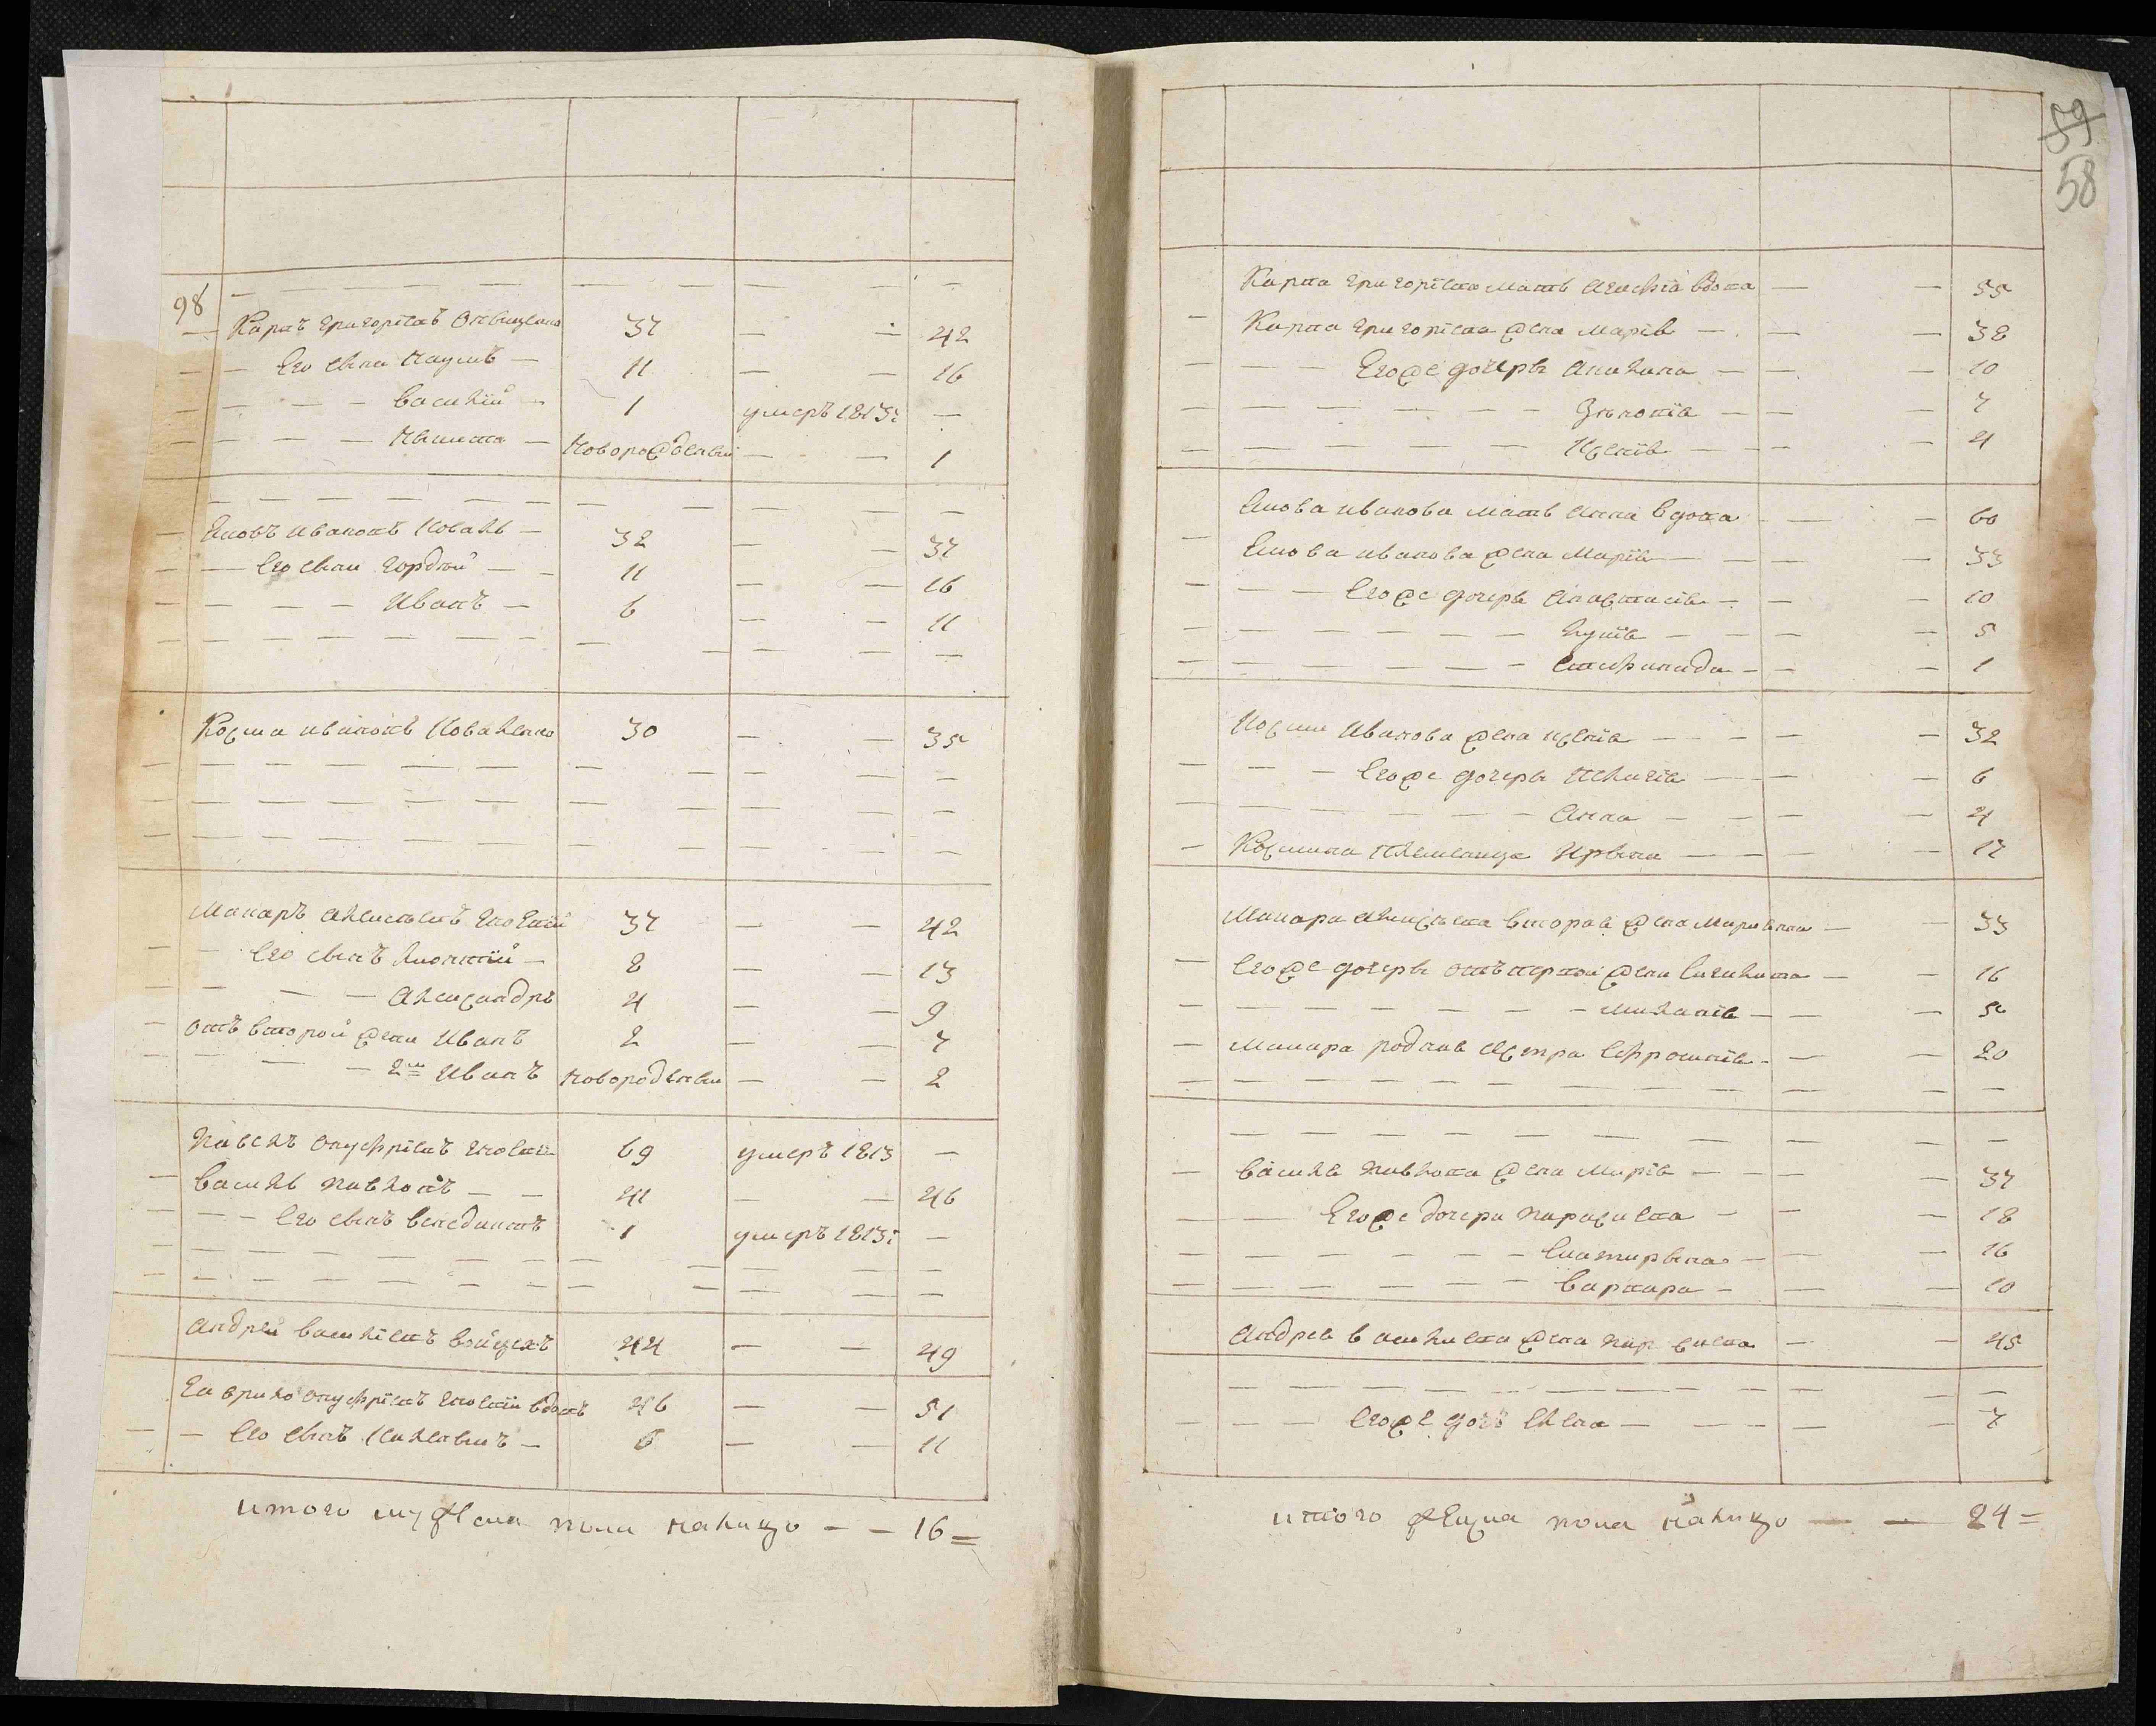 98
Карпъ Григоріевъ 37 42
Его сынъ Наумъ 11 16
Василій 1 умеръ 1813 —
Никита Новорожденный 1
Яковъ Ивановъ Коваль 32 37
Его сынъ Гордѣй 11 16
Иванъ 6 11
Козма Ивановъ Коваленко 30 35
Макаръ Алексѣевъ 37 42
Его сынъ Леонтій 8 13
Александръ 4 9
отъ второй жены Иванъ 2 7
2й Иванъ новорожденный 2
Павелъ Онуфріевъ 69 умеръ 1813 —
Василь Павловъ 41 46
Его сынъ Венедиктъ 1 умеръ 1813 —
Андрей Василіевъ 44 49
Гаврило Онуфріевъ вдовъ 46 51
Его сынъ 6 11
итого мужеска пола налицо — — 16 =
59
58
Карпа Григоріева мать Агафія вдова 55
Карпа Григоріева жена Марія 38
Его же дочери Акилина 10
Зѣновія 7
Ксенія 4
Якова Иванова мать Анна вдова 60
Якова Иванова жена Марія 33
Его же дочери Анастасія 10
5
Стефанида 1
Козми Иванова жена Ксенія 32
Его же дочери Пелагія 6
Анна 4
Козмина племенница Ирына 17
Макара Алексѣева вторая жена Марыяна 33
Его же дочери отъ первой жены 16
Миланія 5
Макара родная сестра Ефросинія 20
Василя Павлова жена Марія 37
Его же дочери Параскева 18
Екатирына 16
Варвара 10
Андрея Василиева жена Параскева 45
Его же дочь Елена 7
итого женска пола налицо — — 24 =